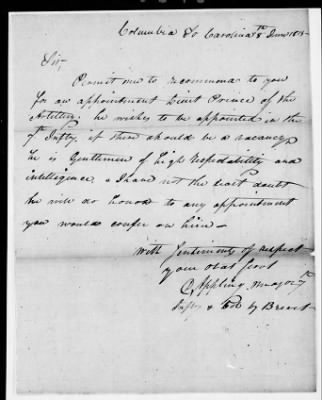 Columbia So Carolina 8th June 1815
Sir,
Permit me to recommend to you
for an appointment Lieut Prince of the
Artillery. he wishes to be appointed in the
7th Infty, if there should be a vacancy,
he is Gentlemen of high respectability and
intelligence & I have not the least doubt
he will do honor to any appointment
you would confer on him —
With Sentiments of respect
your obdt Servt
D Appling Major 7th
Infty & Col by Brevet